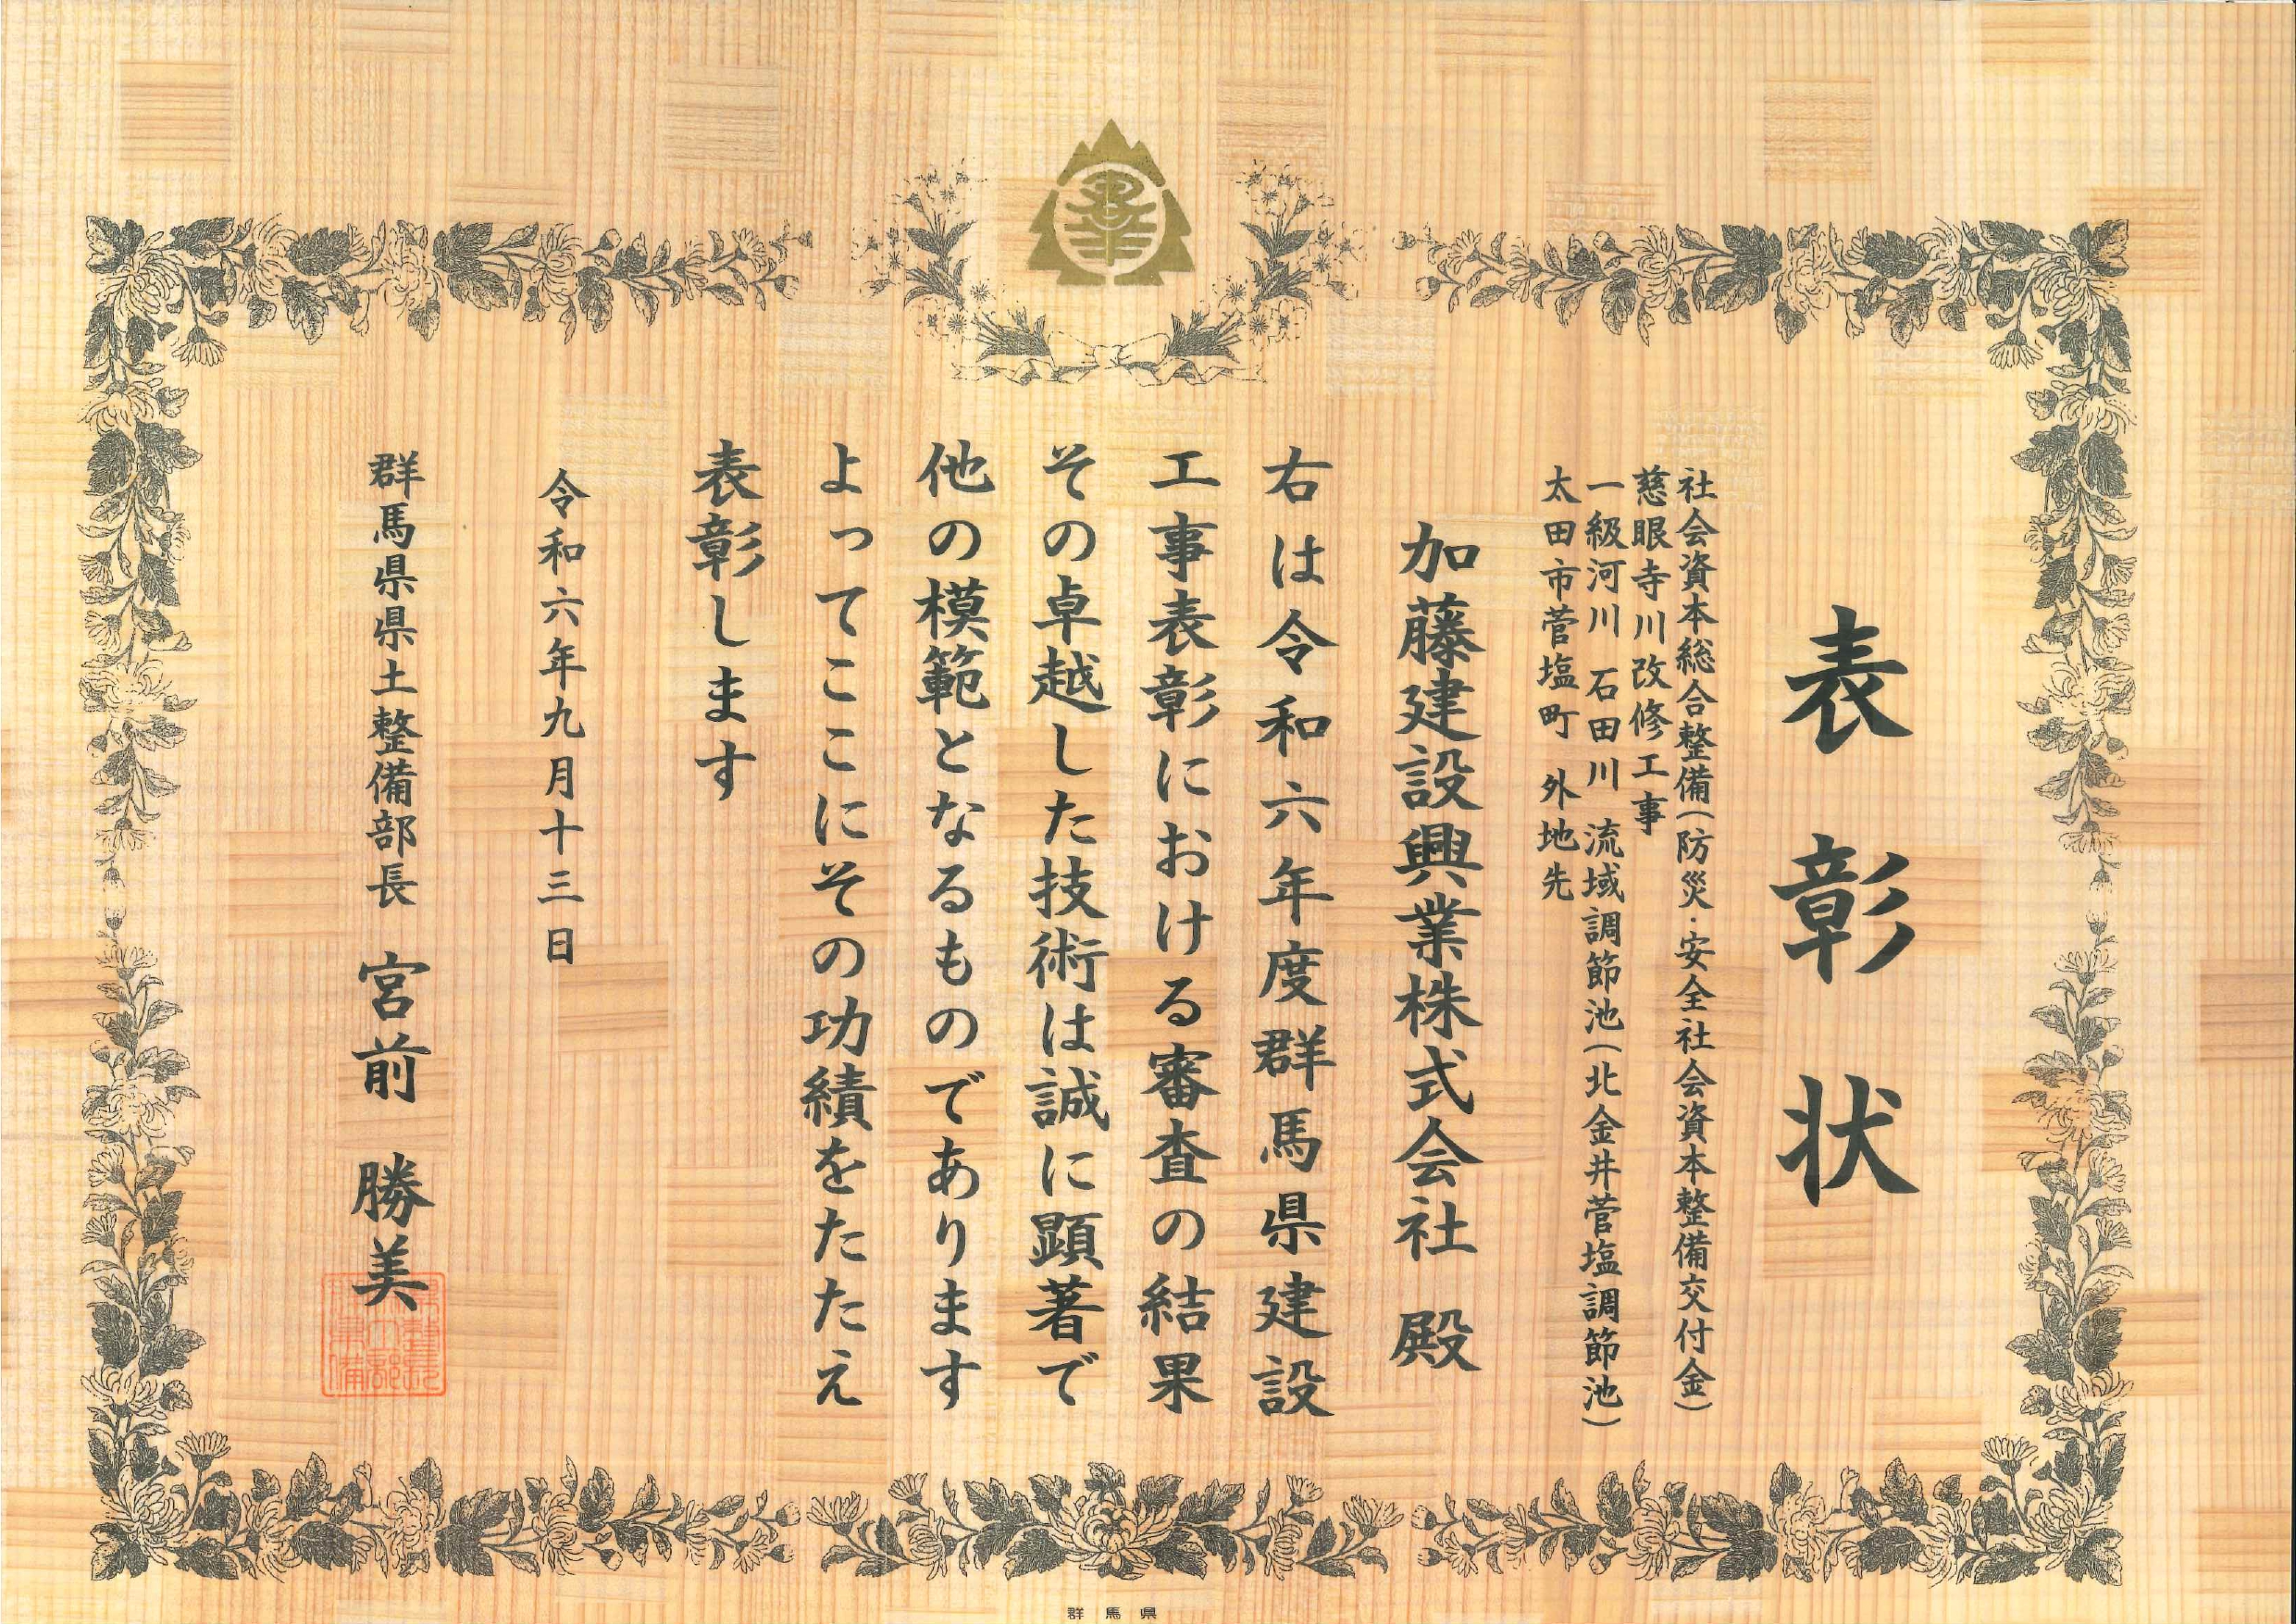 表彰状
社会資本総合整備(防災・安全社会資本整備交付金)
慈眼寺川改修工事
一級河川 石田川 流域調節池(北金井菅塩調節池)
太田市菅塩町 外地先
加藤建設興業株式会社 殿
右は令和六年度群馬県建設
工事表彰における審査の結果
その卓越した技術は誠に顕著で
他の模範となるものであります
よってここにその功績をたたえ
表彰します
令和六年九月十三日
群馬県県土整備部長 宮前 勝美
群馬県